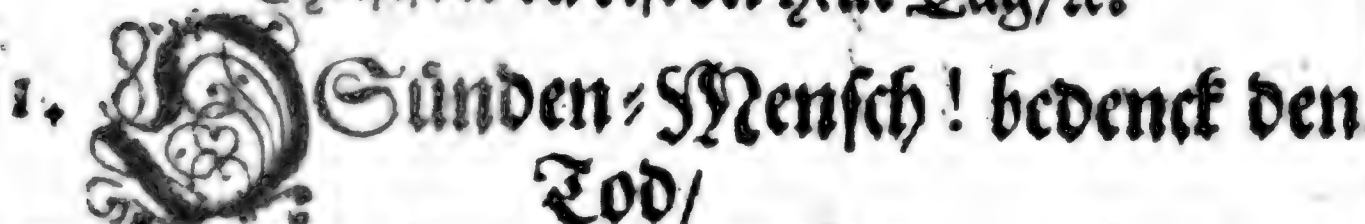 1. O Sünden-Mensch! bedenck den
Tod/